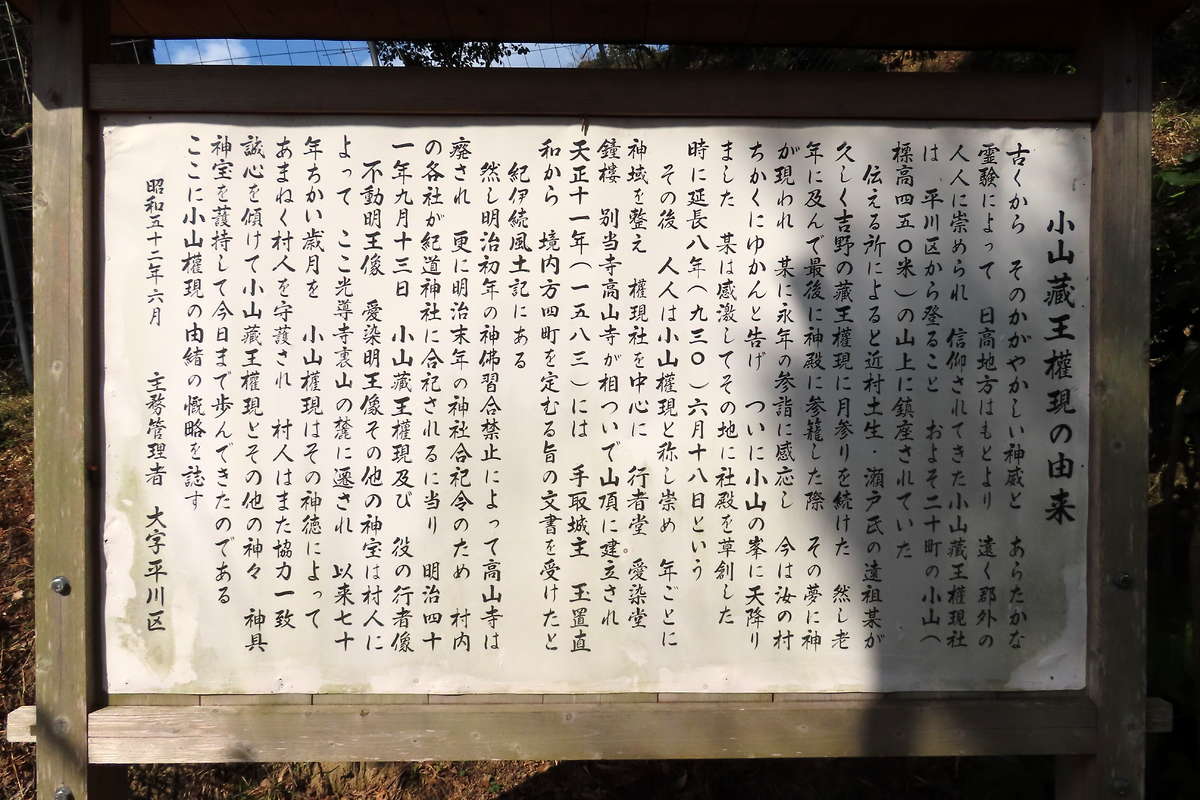 小山藏王權現の由来
古くから　そのかがやかしい神威と　あらたかな
霊驗によって　日高地方はもとより　遠く郡外の
人人に崇められ　信仰されてきた小山藏王權現社
は　平川区から登ること　およそ二十町の小山（
標高四五〇米）の山上に鎮座されていた
伝える所によると近村土生・瀬戸氏の遠祖某が
久しく吉野の藏王權現に月参りを続けた　然し老
年に及んで最後に神殿に参籠した際　その夢に神
が現われ　某に永年の参詣に感応し　今は汝の村
ちかくにゆかんと告げ　ついに小山の峯に天降り
ました　某は感激してその地に社殿を草創した
時に延長八年（九三〇）六月十八日という
その後　人人は小山權現と称し崇め　年ごとに
神域を整え　權現社を中心に　行者堂　愛染堂
鐘樓　別当寺高山寺が相ついで山頂に建立され
天正十一年（一五八三）には　手取城主　玉置直
和から　境内方四町を定むる旨の文書を受けたと
紀伊続風土記にある
然し明治初年の神佛習合禁止によって高山寺は
廃され　更に明治末年の神社合祀令のため　村内
の各社が紀道神社に合祀されるに当り　明治四十
一年九月十三日　小山藏王權現及び　役の行者像
不動明王像　愛染明王像その他の神宝は村人に
よって　ここ光導寺裏山の麓に遷され　以来七十
年ちかい歳月を　小山權現はその神徳によって
あまねく村人を守護され　村人はまた協力一致
誠心を傾けて小山藏王權現とその他の神々　神具
神宝を護持して今日まで歩んできたのである
ここに小山權現の由緒の慨略を誌す
昭和五十二年六月　主務管理者　大字平川区